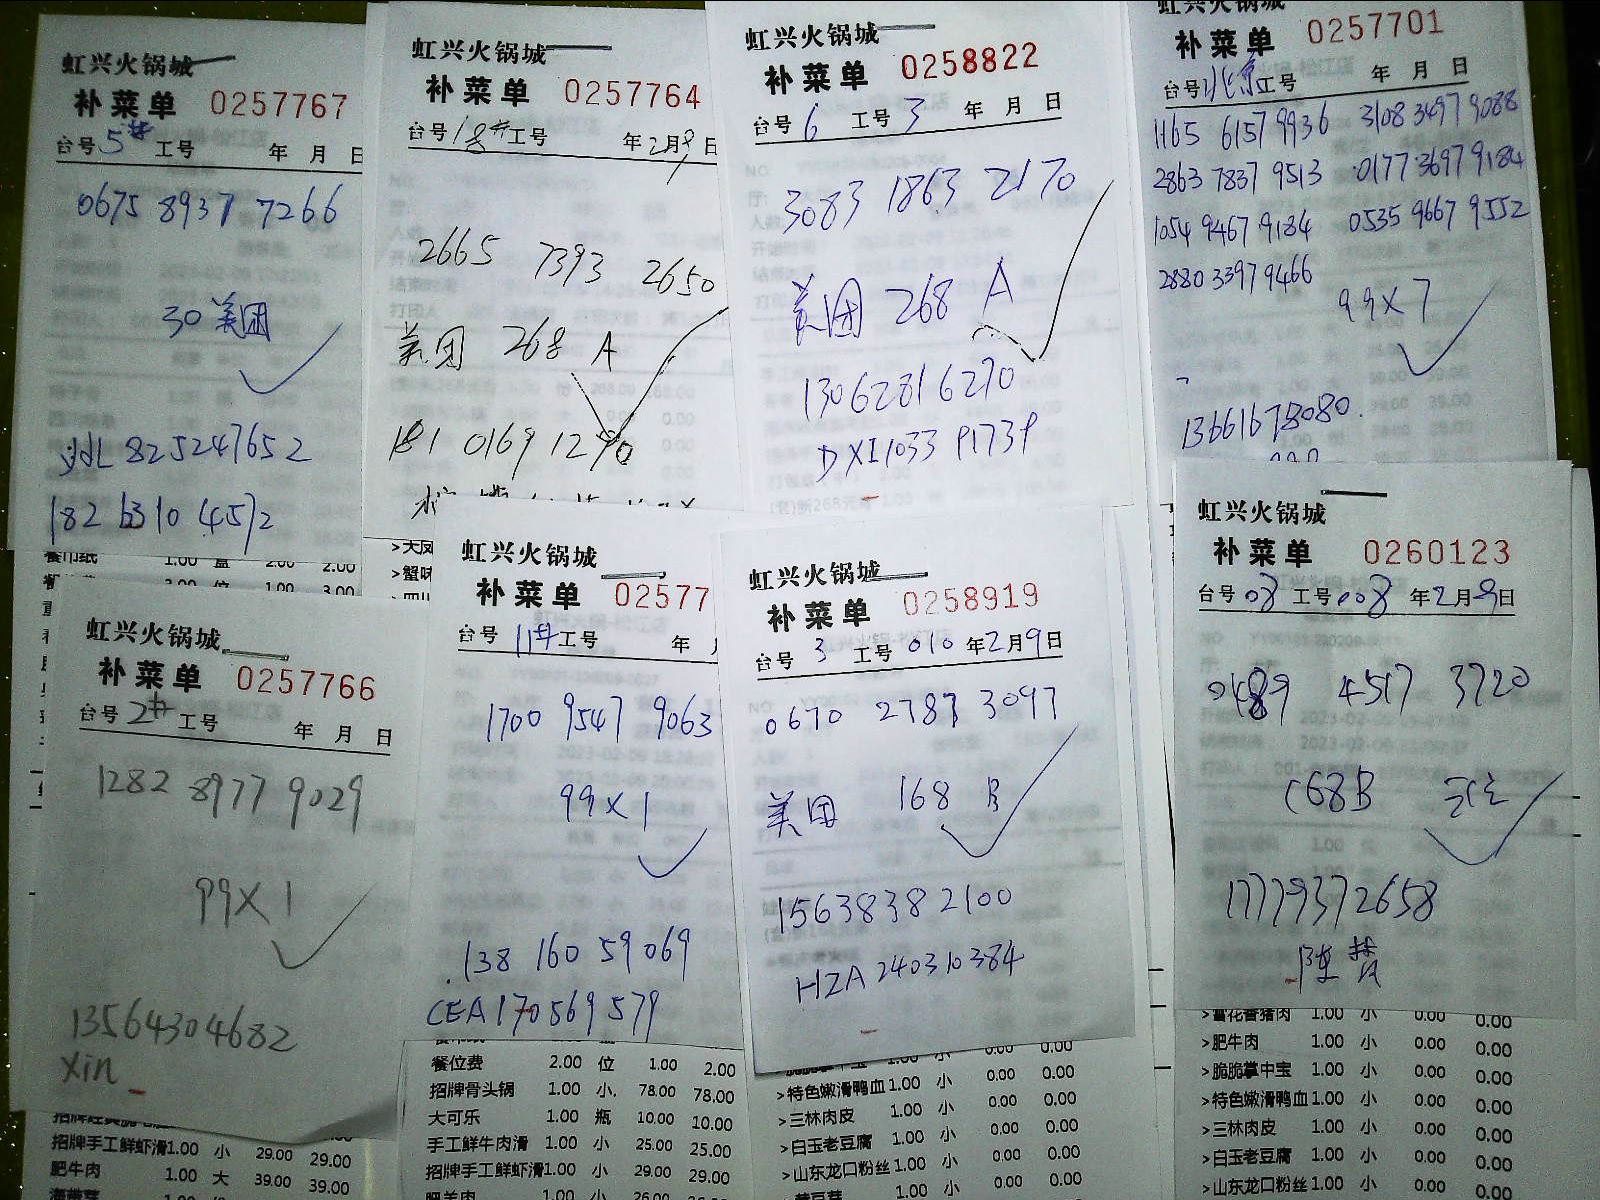 虹兴火锅城
补菜单 0257767
台号 5# 工号 年 月 日
0675 8937 7266
30 美团
ydL 825247652
182 6310 4572
餐巾纸 1.00 盒 2.00 2.00
虹兴火锅城
补菜单 0257764
台号 18# 工号 年 2月9日
2665 7393 2650
美团 268 A
181 0169 1290
虹兴火锅城
补菜单 0258822
台号 6 工号 3 年 月 日
3083 1863 2170
美团 268 A
13062816270
DXI1033 P173P
虹兴火锅城
补菜单 0257701
台号 北京 工号 年 月 日
1165 6157 9936 3108 3497 9088
2863 7837 9513 0177 3697 9184
1054 9467 9134 0535 9667 9552
2880 3397 9466
99X7
虹兴火锅城
补菜单 0257766
台号 2# 工号 年 月 日
1282 8977 9029
99X1
13564304682
Xin
招牌手工鲜虾滑 1.00 小 29.00 29.00
肥牛肉 1.00 大 39.00 39.00
虹兴火锅城
补菜单 02577
台号 11# 工号 年
1700 9547 9063
99X1
138 160 59069
CEA170569579
餐位费 2.00 位 1.00 2.00
招牌骨头锅 1.00 小. 78.00 78.00
大可乐 1.00 瓶 10.00 10.00
手工鲜牛肉滑 1.00 小 25.00 25.00
招牌手工鲜虾滑 1.00 小 29.00 29.00
肥羊肉 1.00 小 26.00
虹兴火锅城
补菜单 0258919
台号 3 工号 010 年2月9日
0670 2787 3097
美团 168 B
15638382100
HZA240310384
>特色嫩滑鸭血 1.00 小 0.00 0.00
>三林肉皮 1.00 小 0.00 0.00
>白玉老豆腐 1.00 小 0.00 0.00
>山东龙口粉丝 1.00 小 0.00 0.00
虹兴火锅城
补菜单 0260123
台号 08 工号 008 年2月9日
0489 4517 3720
168B
17779372658
>雪花香猪肉 1.00 小 0.00 0.00
>肥牛肉 1.00 小 0.00 0.00
>脆脆掌中宝 1.00 小 0.00 0.00
>特色嫩滑鸭血 1.00 小 0.00 0.00
>三林肉皮 1.00 小 0.00 0.00
>白玉老豆腐 1.00 小 0.00 0.00
>山东龙口粉丝 1.00 小 0.00 0.00